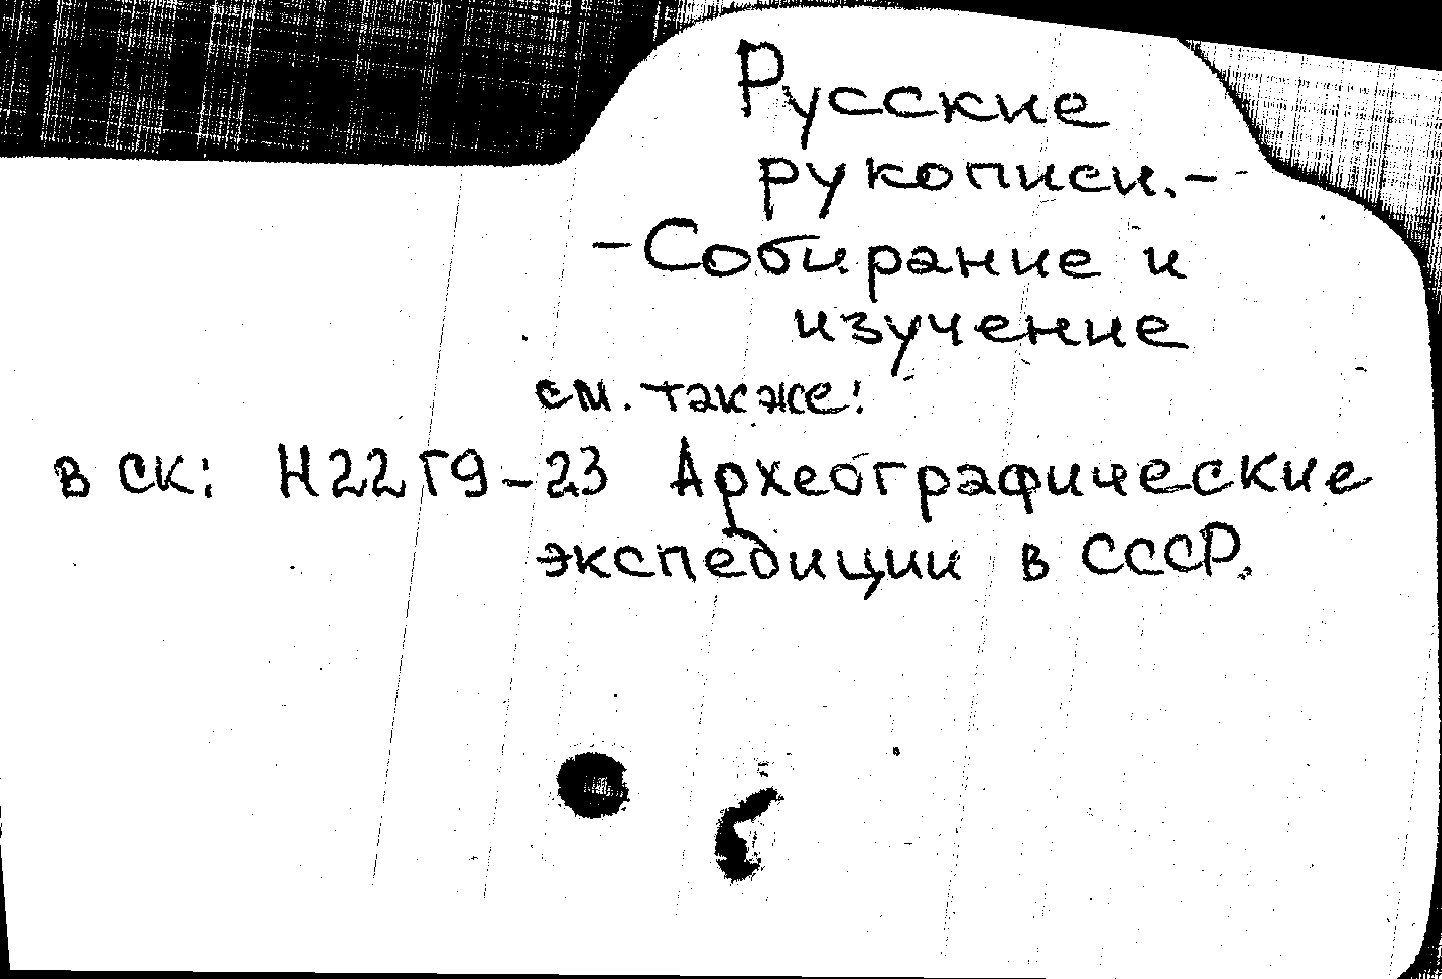 Русские
рукописи.-
-Собирание и
изучение
см. также:
в СК: Н22Г9-23 Археографические
экспедиции в СССР.